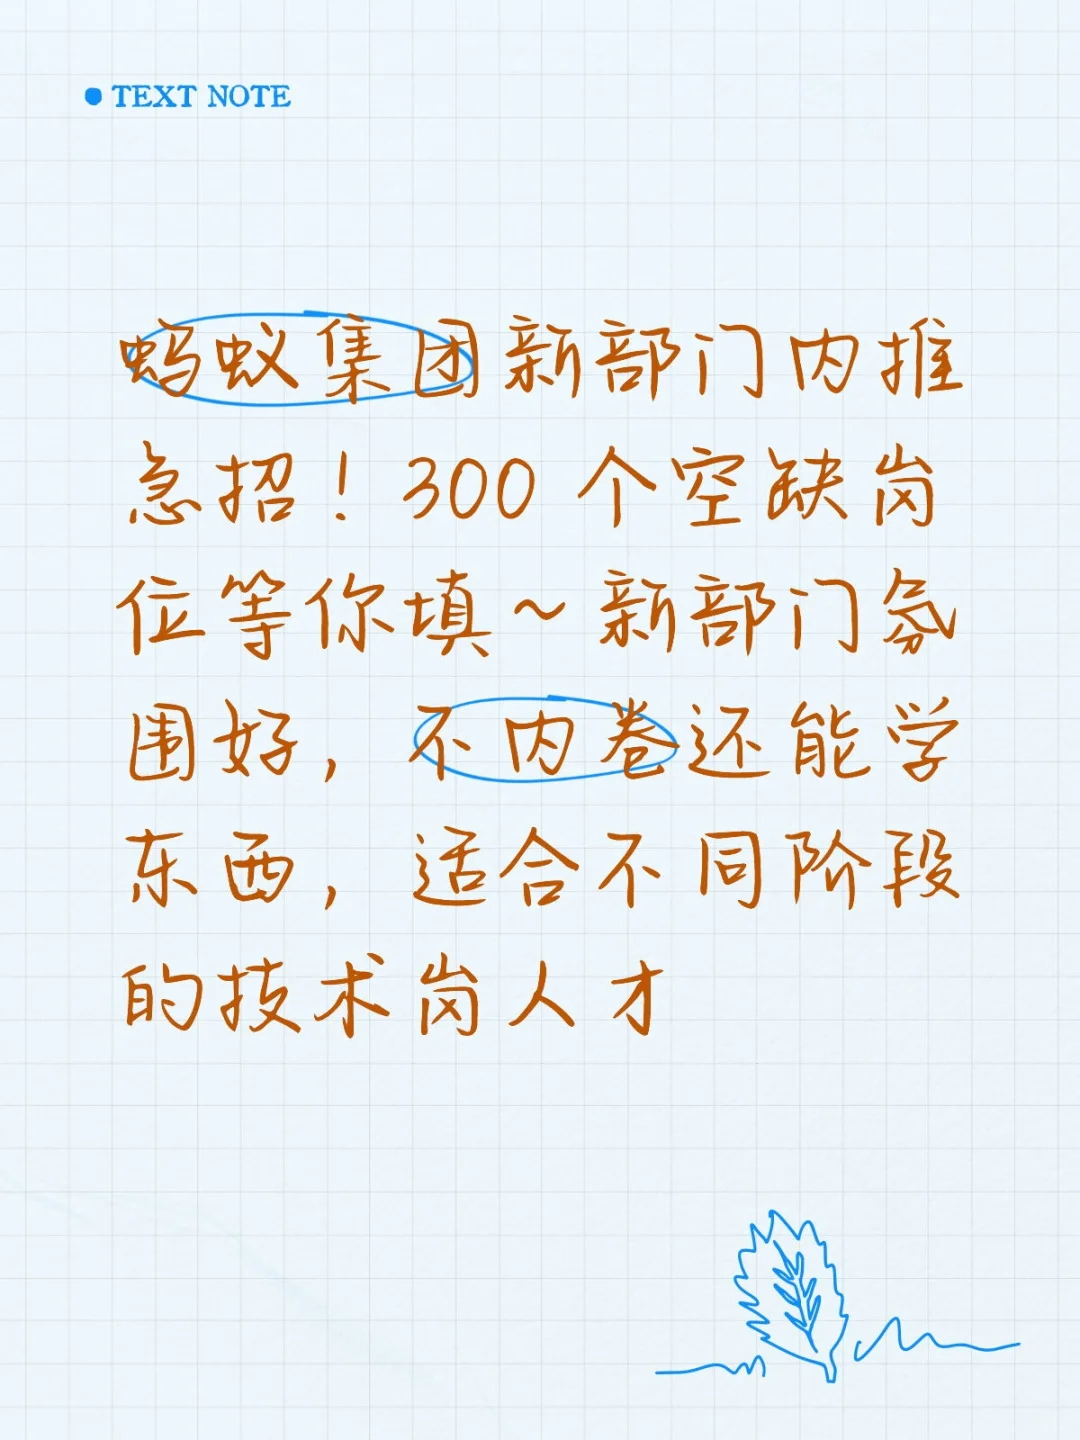 TEXT NOTE
蚂蚁集团新部门内推
急招！300 个空缺岗
位等你填～新部门氛
围好，不内卷还能学
东西，适合不同阶段
的技术岗人才